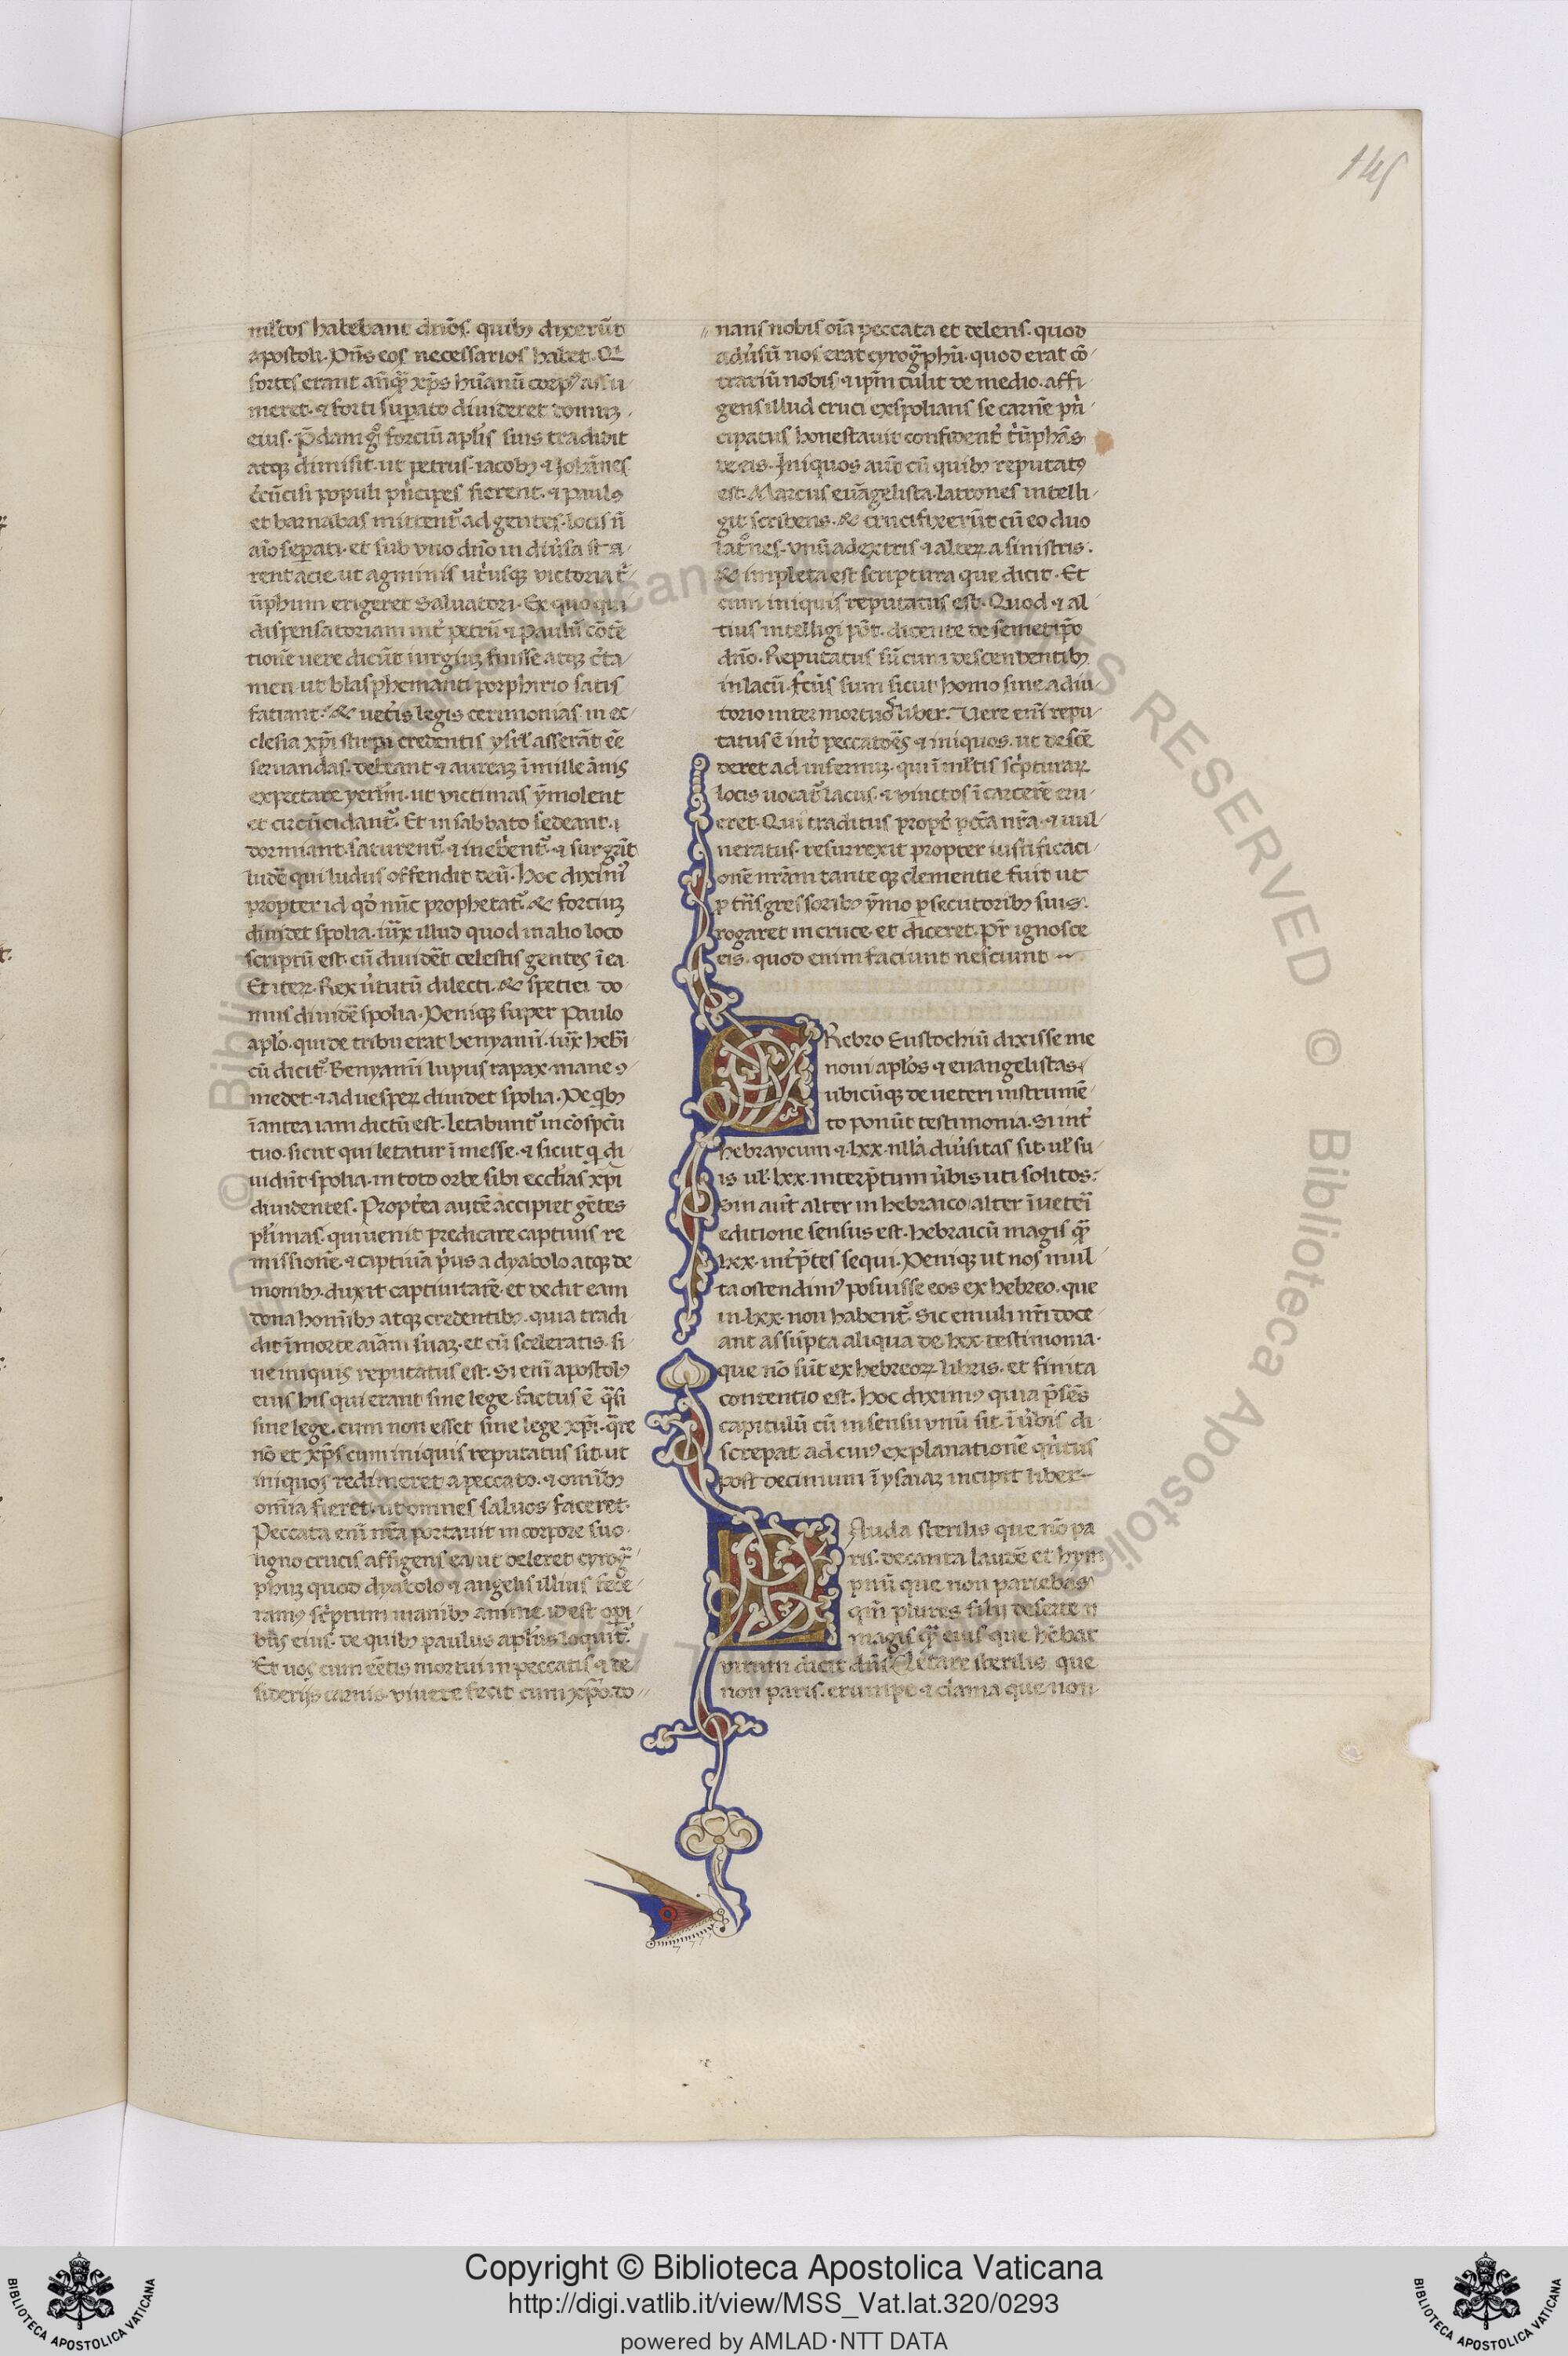 145
ml'tos habebant dños. quib; dixerūt
apostoli. Dñs eos necessarios habet. Q
fortes erant añq̄ xp̄s hūanū corp' assu
meret. & forti supato diuideret domū
eius. p̄dam g° forciū apl'is suis tradidit
atq; dimisit. ut petrus. iacob; & Iohānes
populi p̄ncipes fierent. & paul9
et barnabas mittent' ad gentes. locis ñ
aīo sepati. et sub vno dño in diu'sa sta
rent acie. ut agminis ut'usq; victoria t'
ūphum erigeret Saluatori. Ex quo qui
dispensatoriam int' petrū & Paulū cōtē
tionē uere dicūt iurgiū fuisse atq; c'ta
men. ut blasphemanti porphirio satis
faciant. & uet'is legis cerimonias in ec
clesia xp̄i stirpi credentis ysrl' asserāt eē
seruandas. debeant & auream ī mille ānis
expectare yerl'm. ut victimas ymolent
et circūcidant'. Et in sabbato sedeant.
dormiant. saturent' & inebrient'. & surgāt
ludē qui ludus offendit deū. hoc dixim'
propter id qd nūc prophetat'. & forcium
diuidet spolia. iux illud quod in alio loco
scriptū est. cū diuidet celestis gentes ī ea
Et iter. Rex u'tutū dilecti. & speciei do
mus diuidē spolia. Deniq; super Paulo
aplo. qui de tribu erat benyamī. iux hebi
cū dicit'. Benyamī lupus rapax. mane
medet. & ad uesperꝝ diuidet spolia. De qb;
ī antea iam dictū est. letabunt' in cōspectu
tuo. sicut qui letatur ī messe. & sicut q di
uidūt spolia. in toto orbe sibi eccl'ias xp̄i
diuidentes. Propt'ea autē accipiet gētes
pl'imas. qui uenit predicare captiuis re
missionē. & captiuā p'us a dyabolo atq; de
monib; duxit captiuitatē. et dedit eam
dona homīb; atq; credentib;. quia tradi
dit ī morte aīam suam. et cū sceleratis. si
ue iniquis reputatus est. Si enī apostol9
eius his qui erant sine lege. factus ē q̄si
sine lege. cum non esset sine lege xp̄i. q̄re
nō et xp̄s cum iniquis reputatus sit. ut
iniquos redimeret a peccato. & omīb;
omīa fieret. ut omnes saluos faceret.
Peccata enī nr̄a portauit in corpore suo.
ligno crucis affigens ea. ut deleret cyrog
phum quod dyabolo & angelis illius fece
ram9 sc'ptum manib; anime. id est opi
b;s eius. de quib; paulus apl'us loquit'.
Et uos cum eētis mortui in peccatis & de
siderijs carnis. viuere fecit cum xp̄o. do
nans nobis oīa peccata et delens. quod
adu'sū nos erat cyrogphū. quod erat cō
trariū nobis & ip̄m tulit de medio. affi
gens illud cruci exspolians se carnē pn̄
cipatus honestauit confident' t'ūphās
de eis. Iniquos aūt cū quib; reputat9
est. Marcus euāgelista. latrones intelli
git scribens. & crucifixerūt cū eo duo
lat°nes. vnū a dextris & alterꝝ a sinistris.
& impleta est scriptura que dicit. Et
cum iniquis reputatus est. Quod & al
tius intelligi pōt. dicente de semetip̄o
dño. Reputatus sū cum descendentib;
in lacū. fc̄us sum sicut homo sine adiu
torio inter mortuos liber. Vere enī repu
tatus ē int' peccatores & iniquos. ut descē
deret ad infernum. qui ī ml'tis sc'pturarꝝ
locis uocat' lacus. & vinctos ī carcere eru
eret. Qui traditus propt' pc̄ca nr̄a. & uul
neratus. resurrexit propter iustificaci
onē nr̄am tanteq; clementie fuit ut
p tr̄nsgressorib; ymo psecutorib; suis.
rogaret in cruce. et diceret. Pr̄ ignosce
eis. quod enim faciunt nesciunt
CRebro Eustochiū dixisse me
noui aplos & euangelistas
ubicūq; de ueteri instrumē
to ponūt testimonia. Si int'
hebraycum & lxx. nlla diu'sitas sit. ul' su
is ul' lxx. interp̄tum u'bis uti solitos:
Sin aut alter in hebraico alter ī ueteri
editione sensus est. hebraicū magis q̄
lxx. int'p̄tes sequi. Deniq; ut nos mul
ta ostendim' posuisse eos ex hebreo. que
in lxx. non habent'. Sic emuli nr̄i doce
ant assūpta aliqua de lxx. testimonia.
que nō sūt ex hebreorꝝ libris. et finita
contentio est. hoc dixim9 quia p̄sēs
capitulū cū in sensu vnū sit. ī u'bis di
screpat ad cui9 explanationē qn̄tus
post decimum ī ysaiam incipit liber
LAuda sterilis que nō pa
ris. decanta laudē et hym
pnū que non pariebas
qm̄ plures filij deserte
magis q̄ eius que hēbat
virum dicit dñs. Letare sterilis que
non paris. erumpe & clama que non
Copyright © Biblioteca Apostolica Vaticana
http://digi.vatlib.it/view/MSS_Vat.lat.320/0293
powered by AMLAD·NTT DATA
BIBLIOTECA APOSTOLICA VATICANA
BIBLIOTECA APOSTOLICA VATICANA